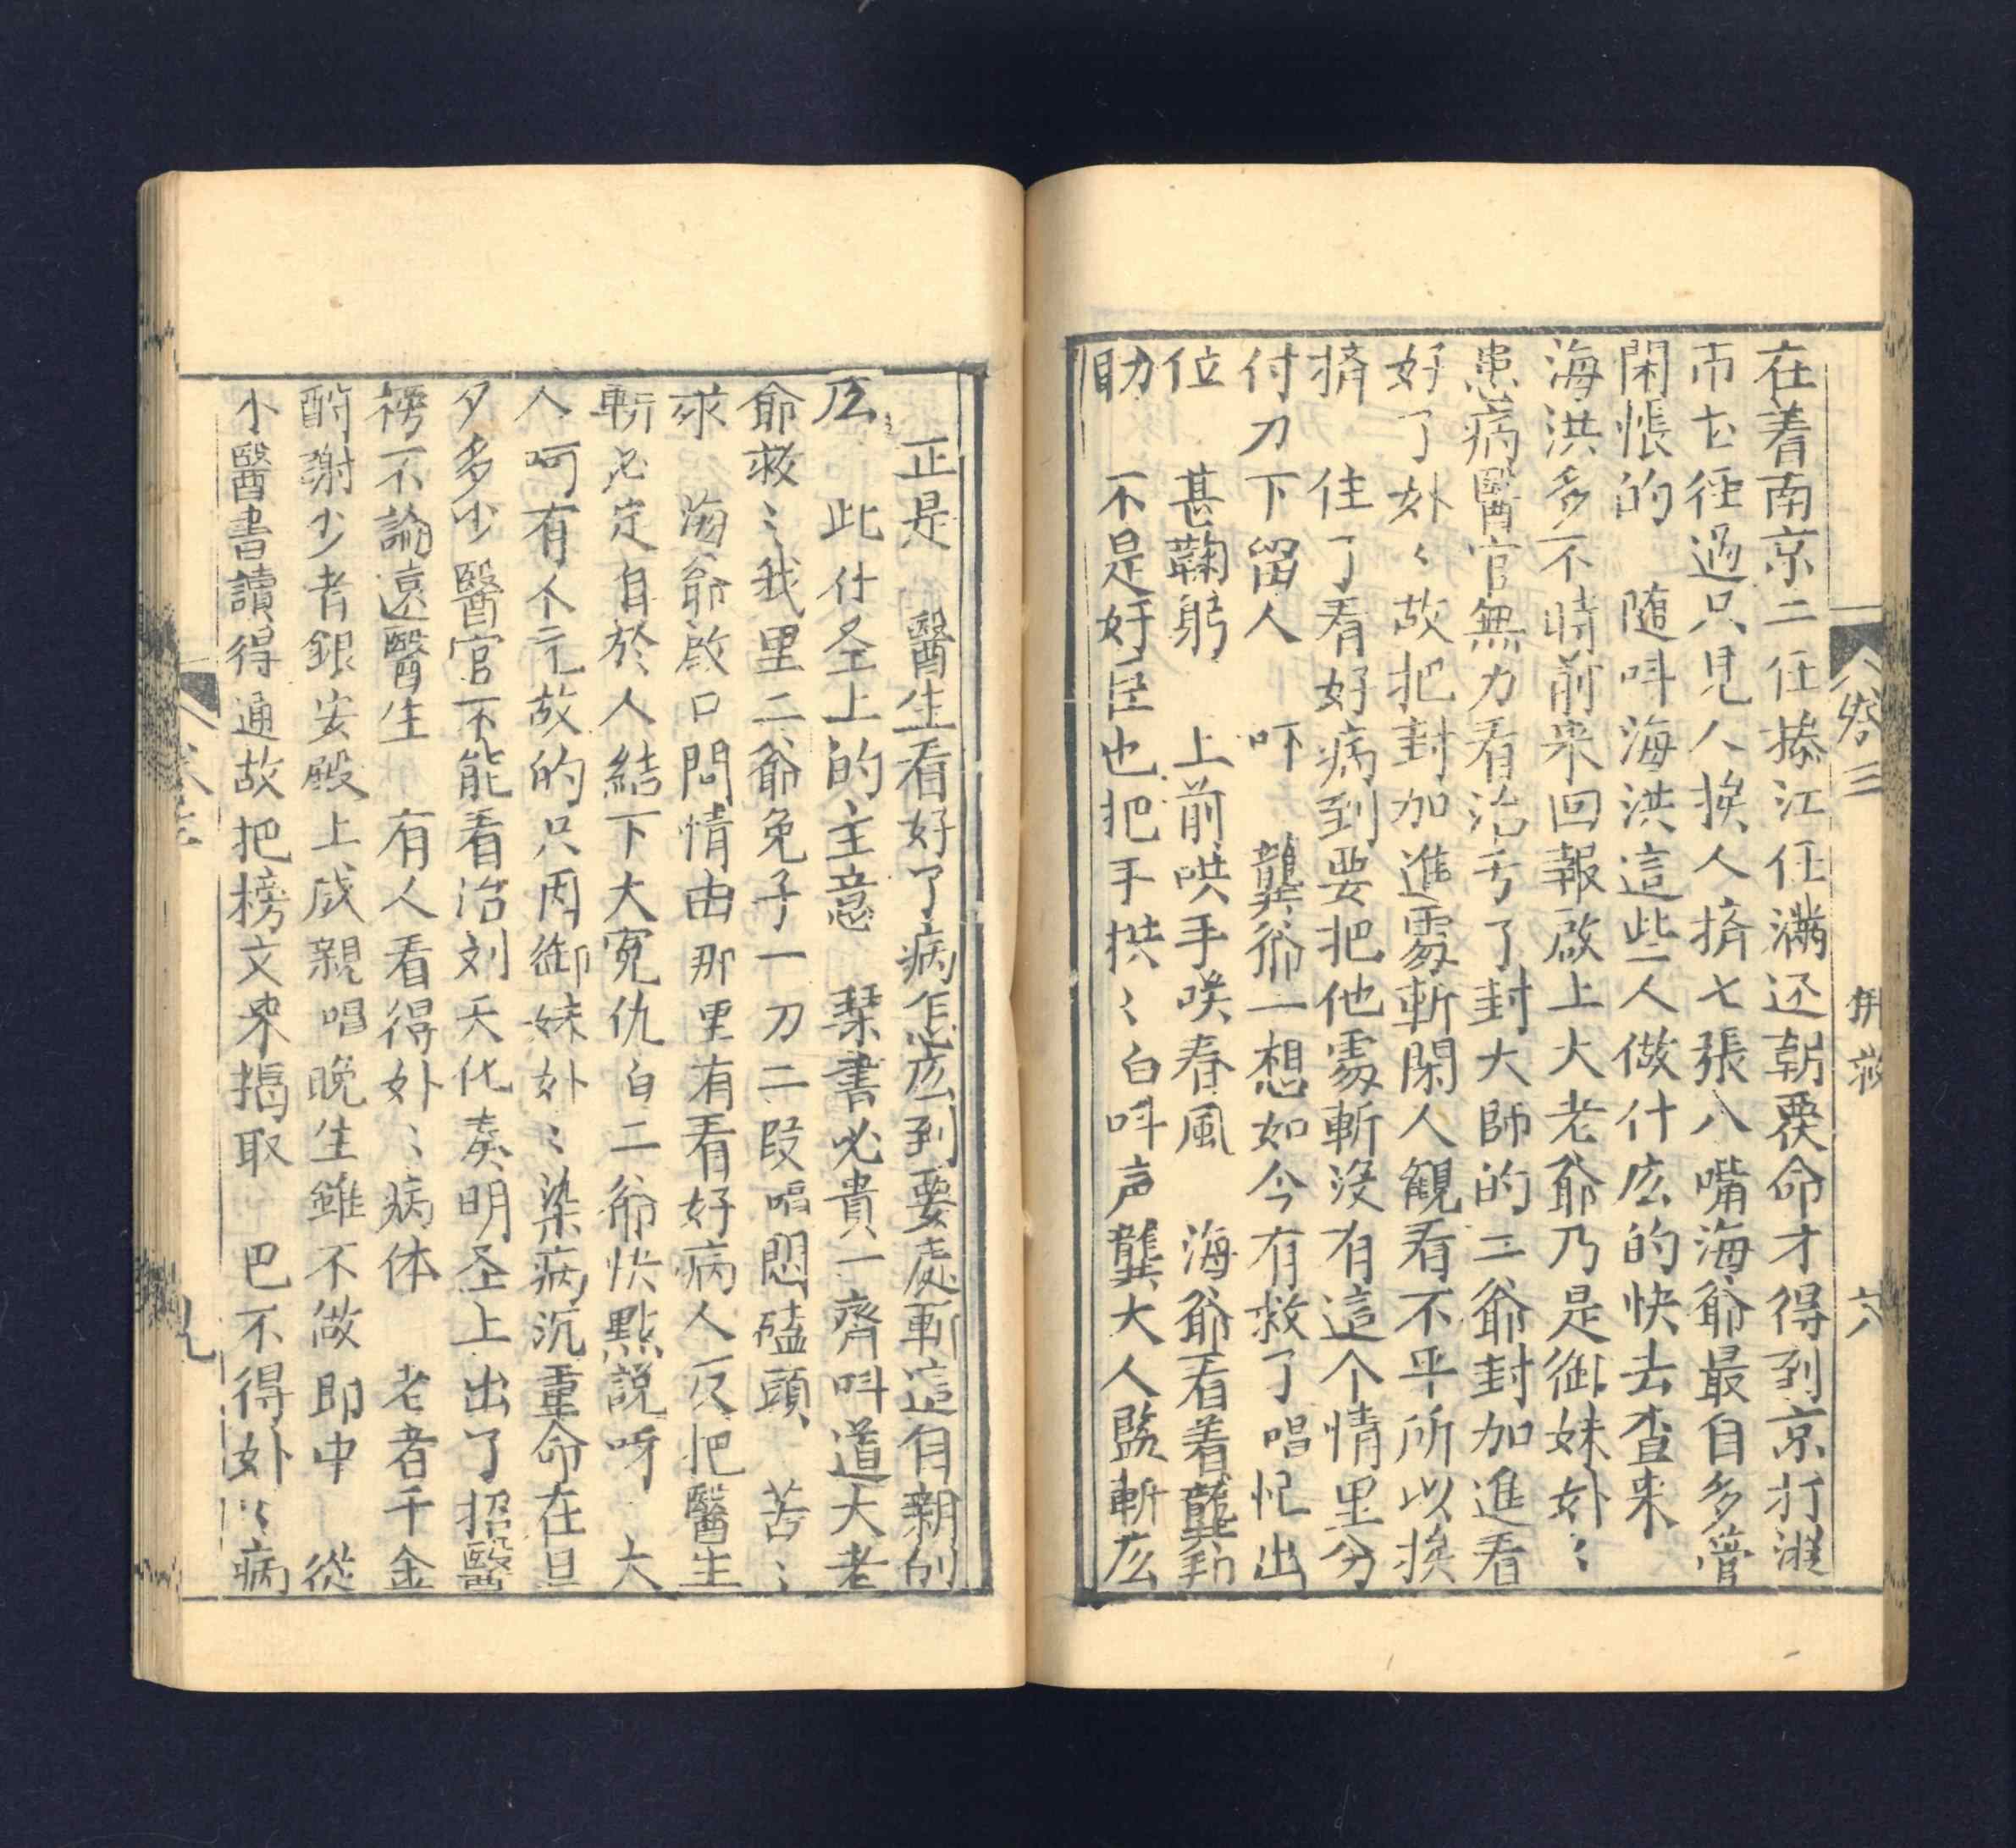 卷三 六
在着南京二任操江任滿还朝覆命才得到京打從
市七徑過只見人挨人擠七張八嘴海爺最自多管
閑悵的 随呌海洪這些人做什庅的快去查来
海洪多不時前来回報啟上大老爺乃是御妹妢〻
患病醫官無力看治亏了封大師的二爺封加進看
好了妢〻故把封加進䖏斬閑人観看不平所以挨
擠 住了看好病到要把他䖏斬没有這个情里分
付刀下留人 吓 龔爺一想如今有救了唱忙出
位 甚鞠躬 上前哄手咲春風 海爺看着龔
助 不是好臣也把手拱〻白呌声龔大人監斬庅
正是 醫生看好了病怎庅到要處斬這有新的
庅 此什圣上的主意 琹書必貴一齊呌道大老
爺救〻我里二爺免子一刀二段唱悶磕頭 苦〻
求 海爺啟口問情由那里有看好病人反把醫生
斬必定自於人結下大寃仇白二爺快點説呀 大
人呵有个元故的只因御妹妢〻染病沉重命在旦
夕多少醫官不能看治刘天化奏明圣上出了招醫
榜不論遠醫生 有人看得妢〻病体 老者千金
酧謝少者銀安殿上成親唱晚生雖不做郎中 從
小醫書讀得通故把榜文来揭取 巴不得妢〻病